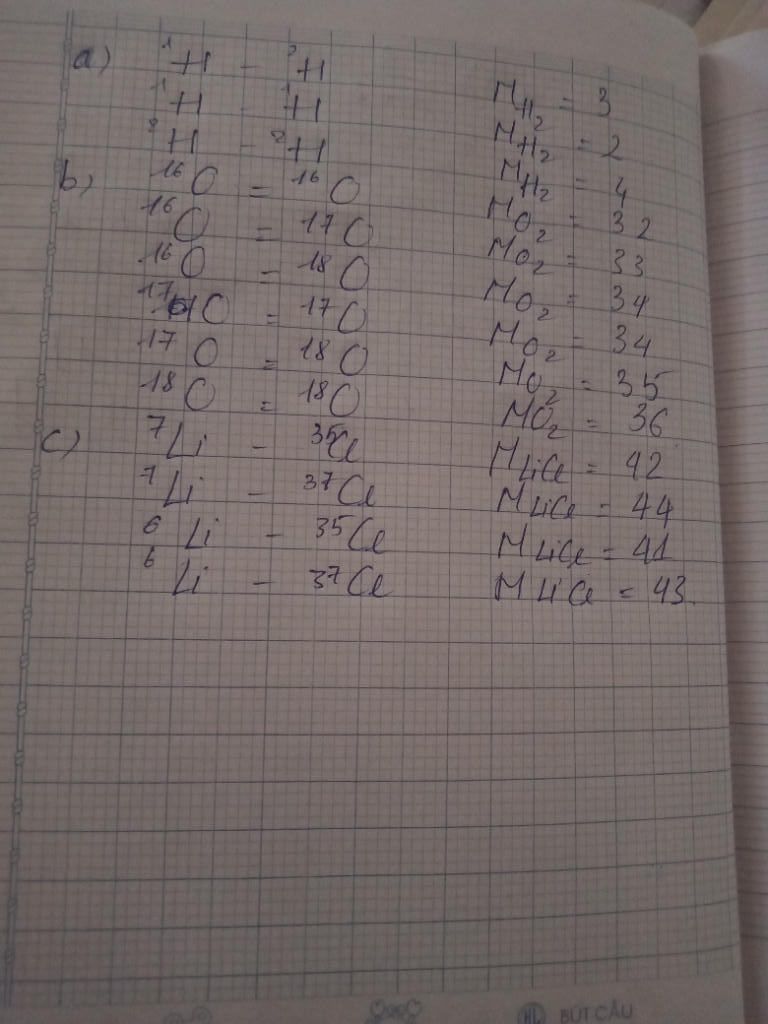 a) ¹H - ²H M_H₂ = 3
¹H - ¹H M_H₂ = 2
²H - ²H M_H₂ = 4
b) ¹⁶O = ¹⁶O M_O₂ = 32
¹⁶O = ¹⁷O M_O₂ = 33
¹⁶O = ¹⁸O M_O₂ = 34
¹⁷O = ¹⁷O M_O₂ = 34
¹⁷O = ¹⁸O M_O₂ = 35
¹⁸O = ¹⁸O M_O₂ = 36
c) ⁷Li - ³⁵Cl M_LiCl = 42
⁷Li - ³⁷Cl M_LiCl = 44
⁶Li - ³⁵Cl M_LiCl = 41
⁶Li - ³⁷Cl M_LiCl = 43.
BÚT CÂU